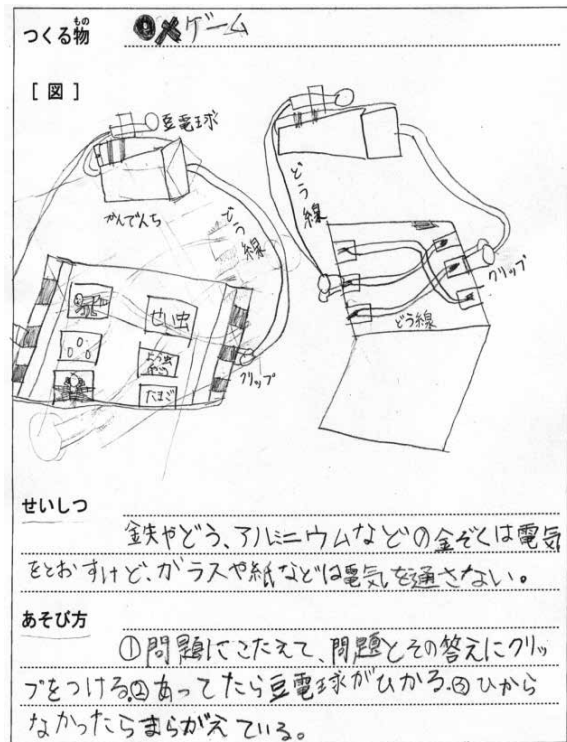 つくる物 ●×ゲーム
もの
[図]
豆電球
かんでんち
どう線
せい虫
よう虫
たまご
クリップ
どう線
クリップ
どう線
せいしつ
鉄やどう、アルミニウムなどの金ぞくは電気
をとおすけど、ガラスや紙などは電気を通さない。
あそび方
①問題にこたえて、問題とその答えにクリッ
プをつける。②あってたら豆電球がひかる。③ひから
なかったらまちがえている。